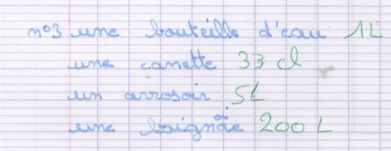 n°3 une bouteille d'eau 1L
une canette 33 cl
un arrosoir 5L
une baignoire 200 L